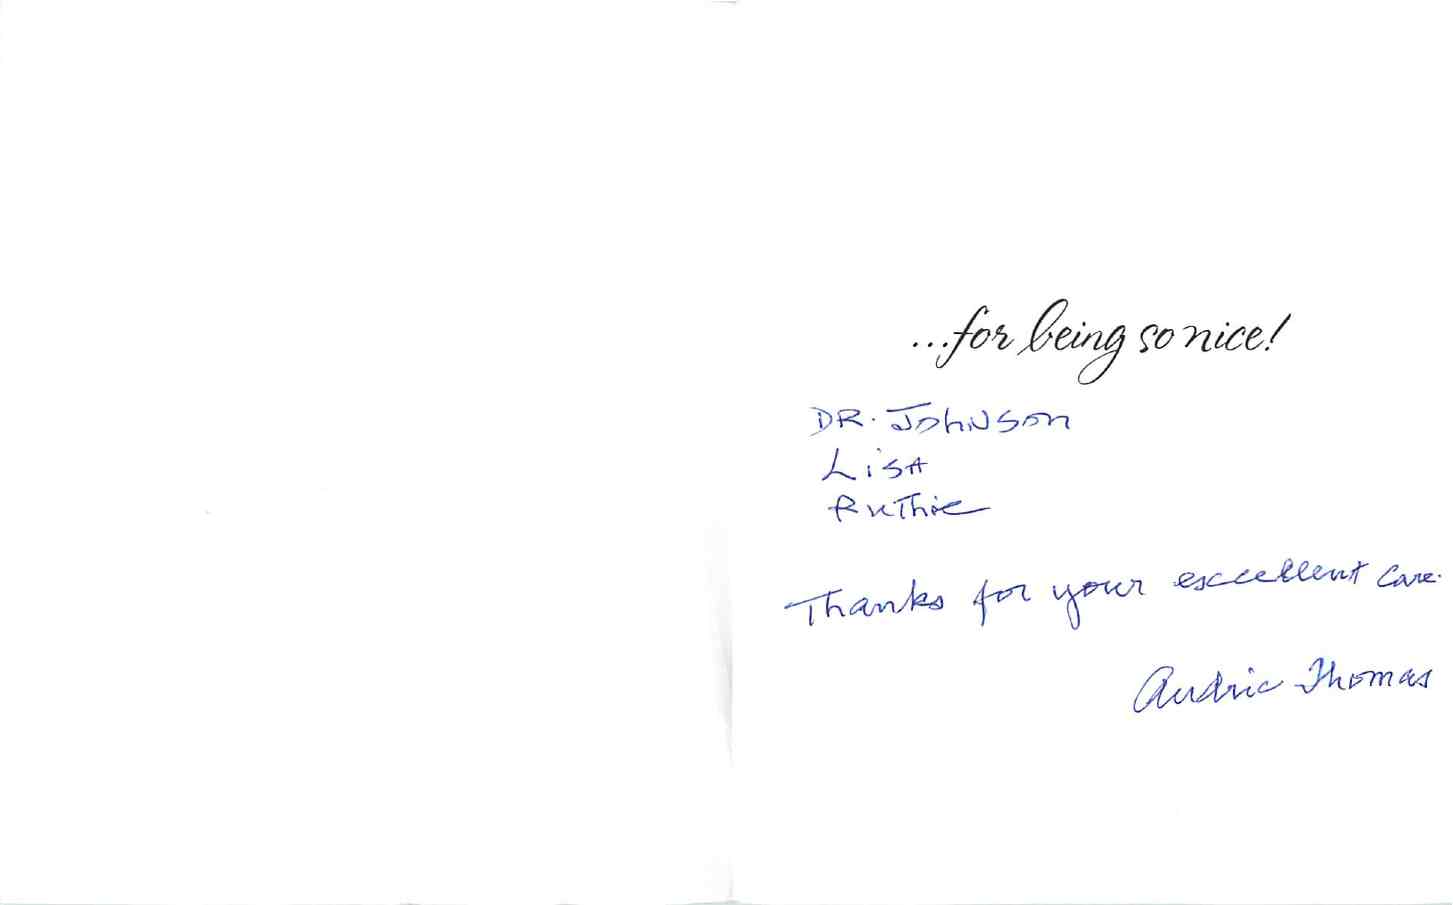 ...for being so nice!
DR. Johnson
Lisa
Ruthie
Thanks for your excellent care.
Audric Thomas